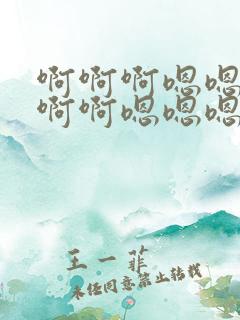 啊啊啊嗯嗯
啊啊嗯嗯嗯
王一菲
未经同意禁止转载